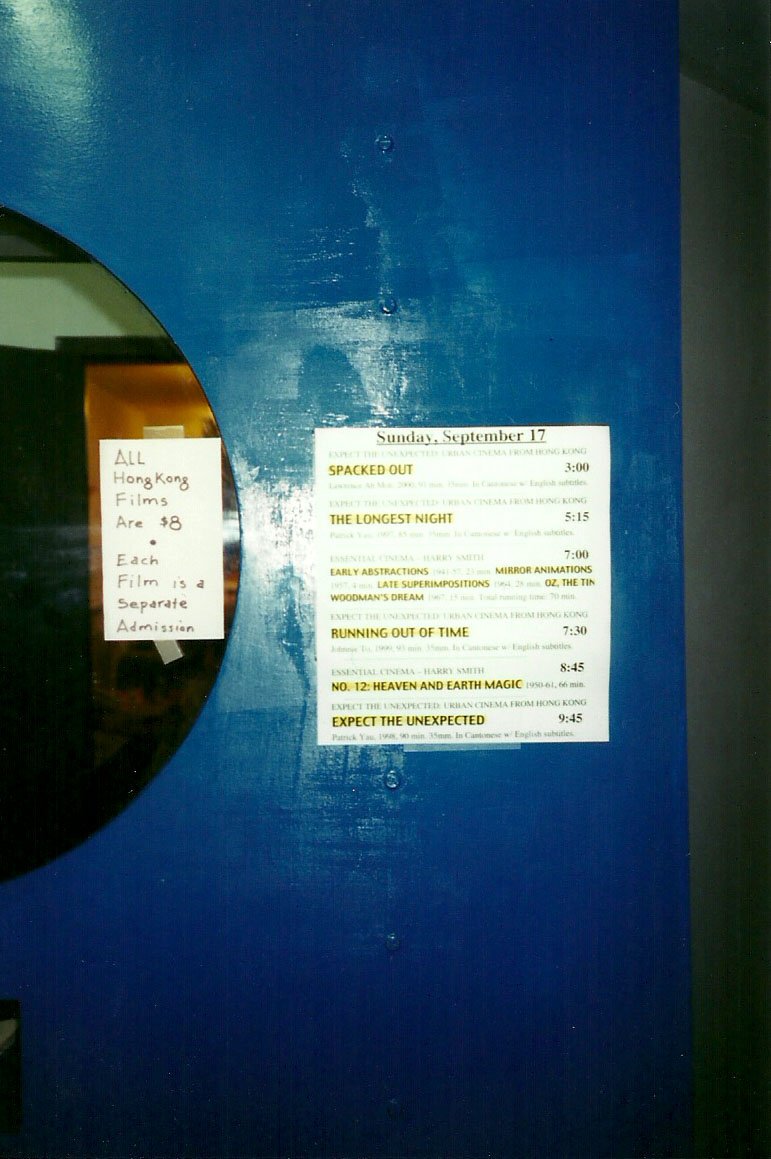 ALL
Hong Kong
Films
Are $8
•
Each
Film is a
Separate
Admission
Sunday, September 17
EXPECT THE UNEXPECTED: URBAN CINEMA FROM HONG KONG
SPACKED OUT 3:00
Lawrence Ah Mon, 2000, 91 min. 35mm. In Cantonese w/ English subtitles.
EXPECT THE UNEXPECTED: URBAN CINEMA FROM HONG KONG
THE LONGEST NIGHT 5:15
Patrick Yau, 1997, 85 min. 35mm. In Cantonese w/ English subtitles.
ESSENTIAL CINEMA – HARRY SMITH 7:00
EARLY ABSTRACTIONS 1941-57, 23 min. MIRROR ANIMATIONS
1957, 4 min. LATE SUPERIMPOSITIONS 1964, 28 min. OZ, THE TIN
WOODMAN'S DREAM 1967, 15 min. Total running time: 70 min.
EXPECT THE UNEXPECTED: URBAN CINEMA FROM HONG KONG
RUNNING OUT OF TIME 7:30
Johnnie To, 1999, 93 min. 35mm. In Cantonese w/ English subtitles.
ESSENTIAL CINEMA – HARRY SMITH 8:45
NO. 12: HEAVEN AND EARTH MAGIC 1950-61, 66 min.
EXPECT THE UNEXPECTED: URBAN CINEMA FROM HONG KONG
EXPECT THE UNEXPECTED 9:45
Patrick Yau, 1998, 90 min. 35mm. In Cantonese w/ English subtitles.